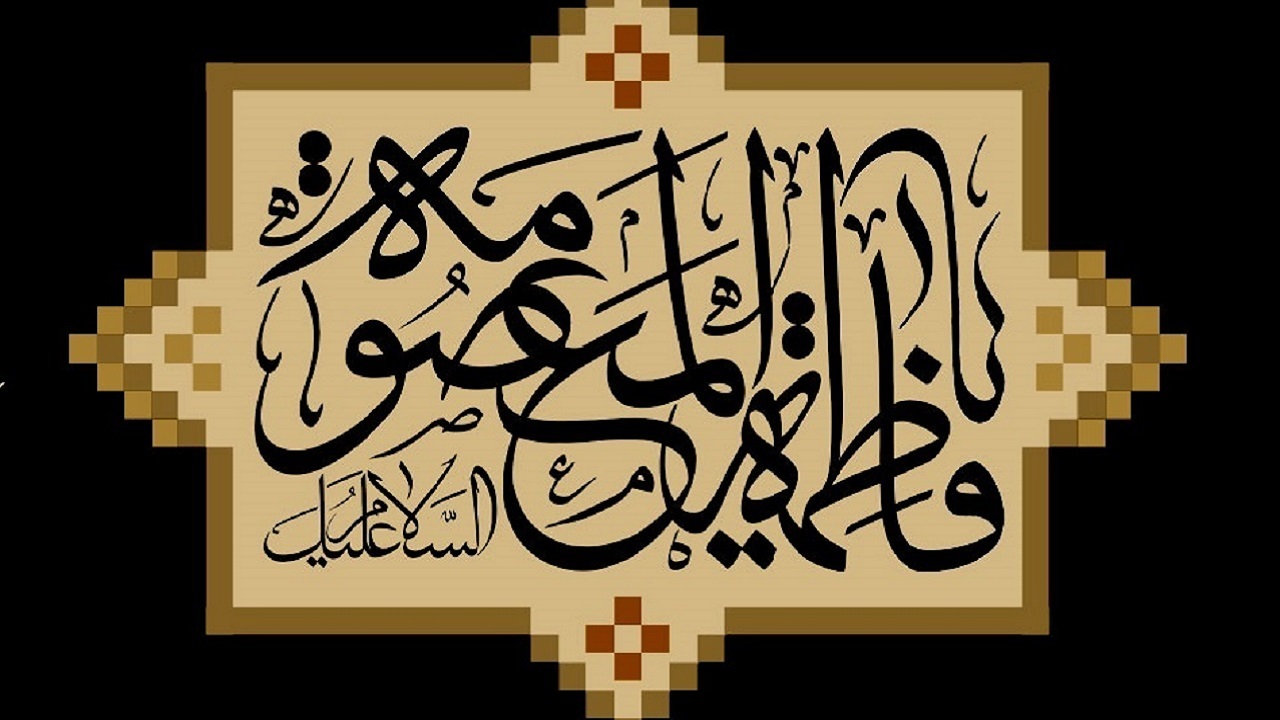 السلام علیک
یا فاطمة المعصومة